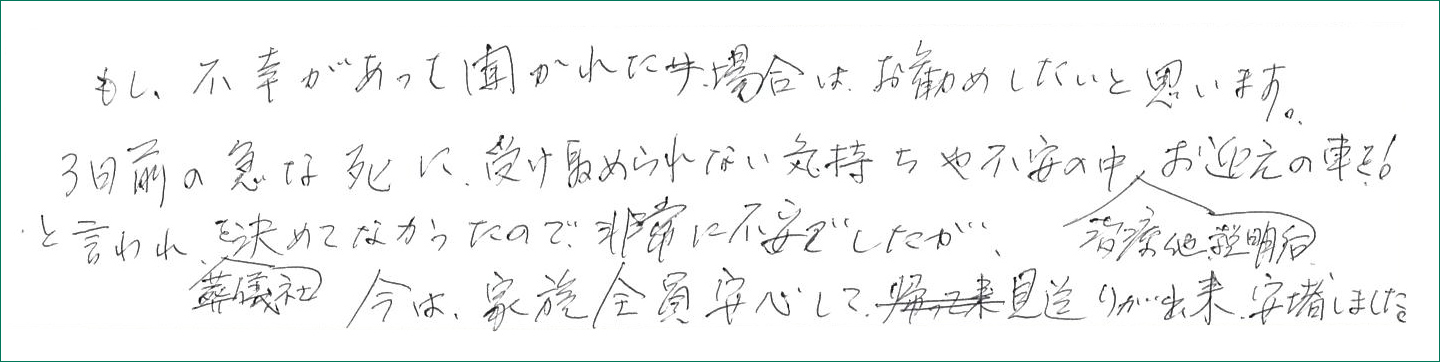 もし、不幸があって聞かれた場合は、お勧めしたいと思います。
3日前の急な死に、受け取められない気持ちや不安の中、お迎えの車を!
と言われ、を決めてなかったので、非常に不安でしたが、
治療他説明
葬儀社
今は、家族全員安心して、帰って来見送りが出来、安堵しました